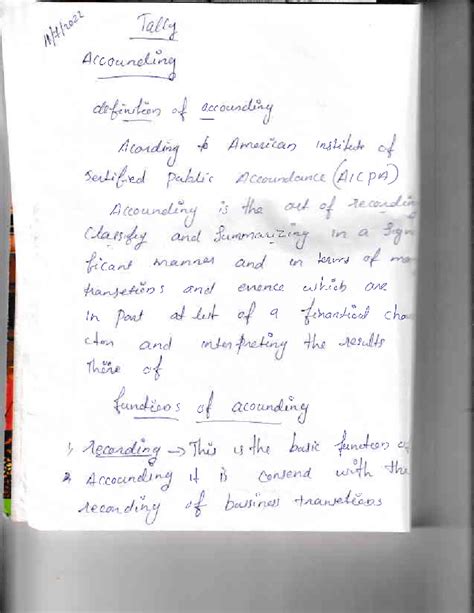 Tally
Accounding
definition of accounding
Acording to American institute of
sertified public Accoundance (AICPA)
Accounding is the art of recording
Classify and Summarizing in a sign
ficant manner and in terms of mo
transetions and evence which are
in part at lest of a finantical cha
cton and interpreting the results
there of
functions of acounding
1) recording → This is the basic function of
2 Accounding it is consend with the
recording of bussiness transetions